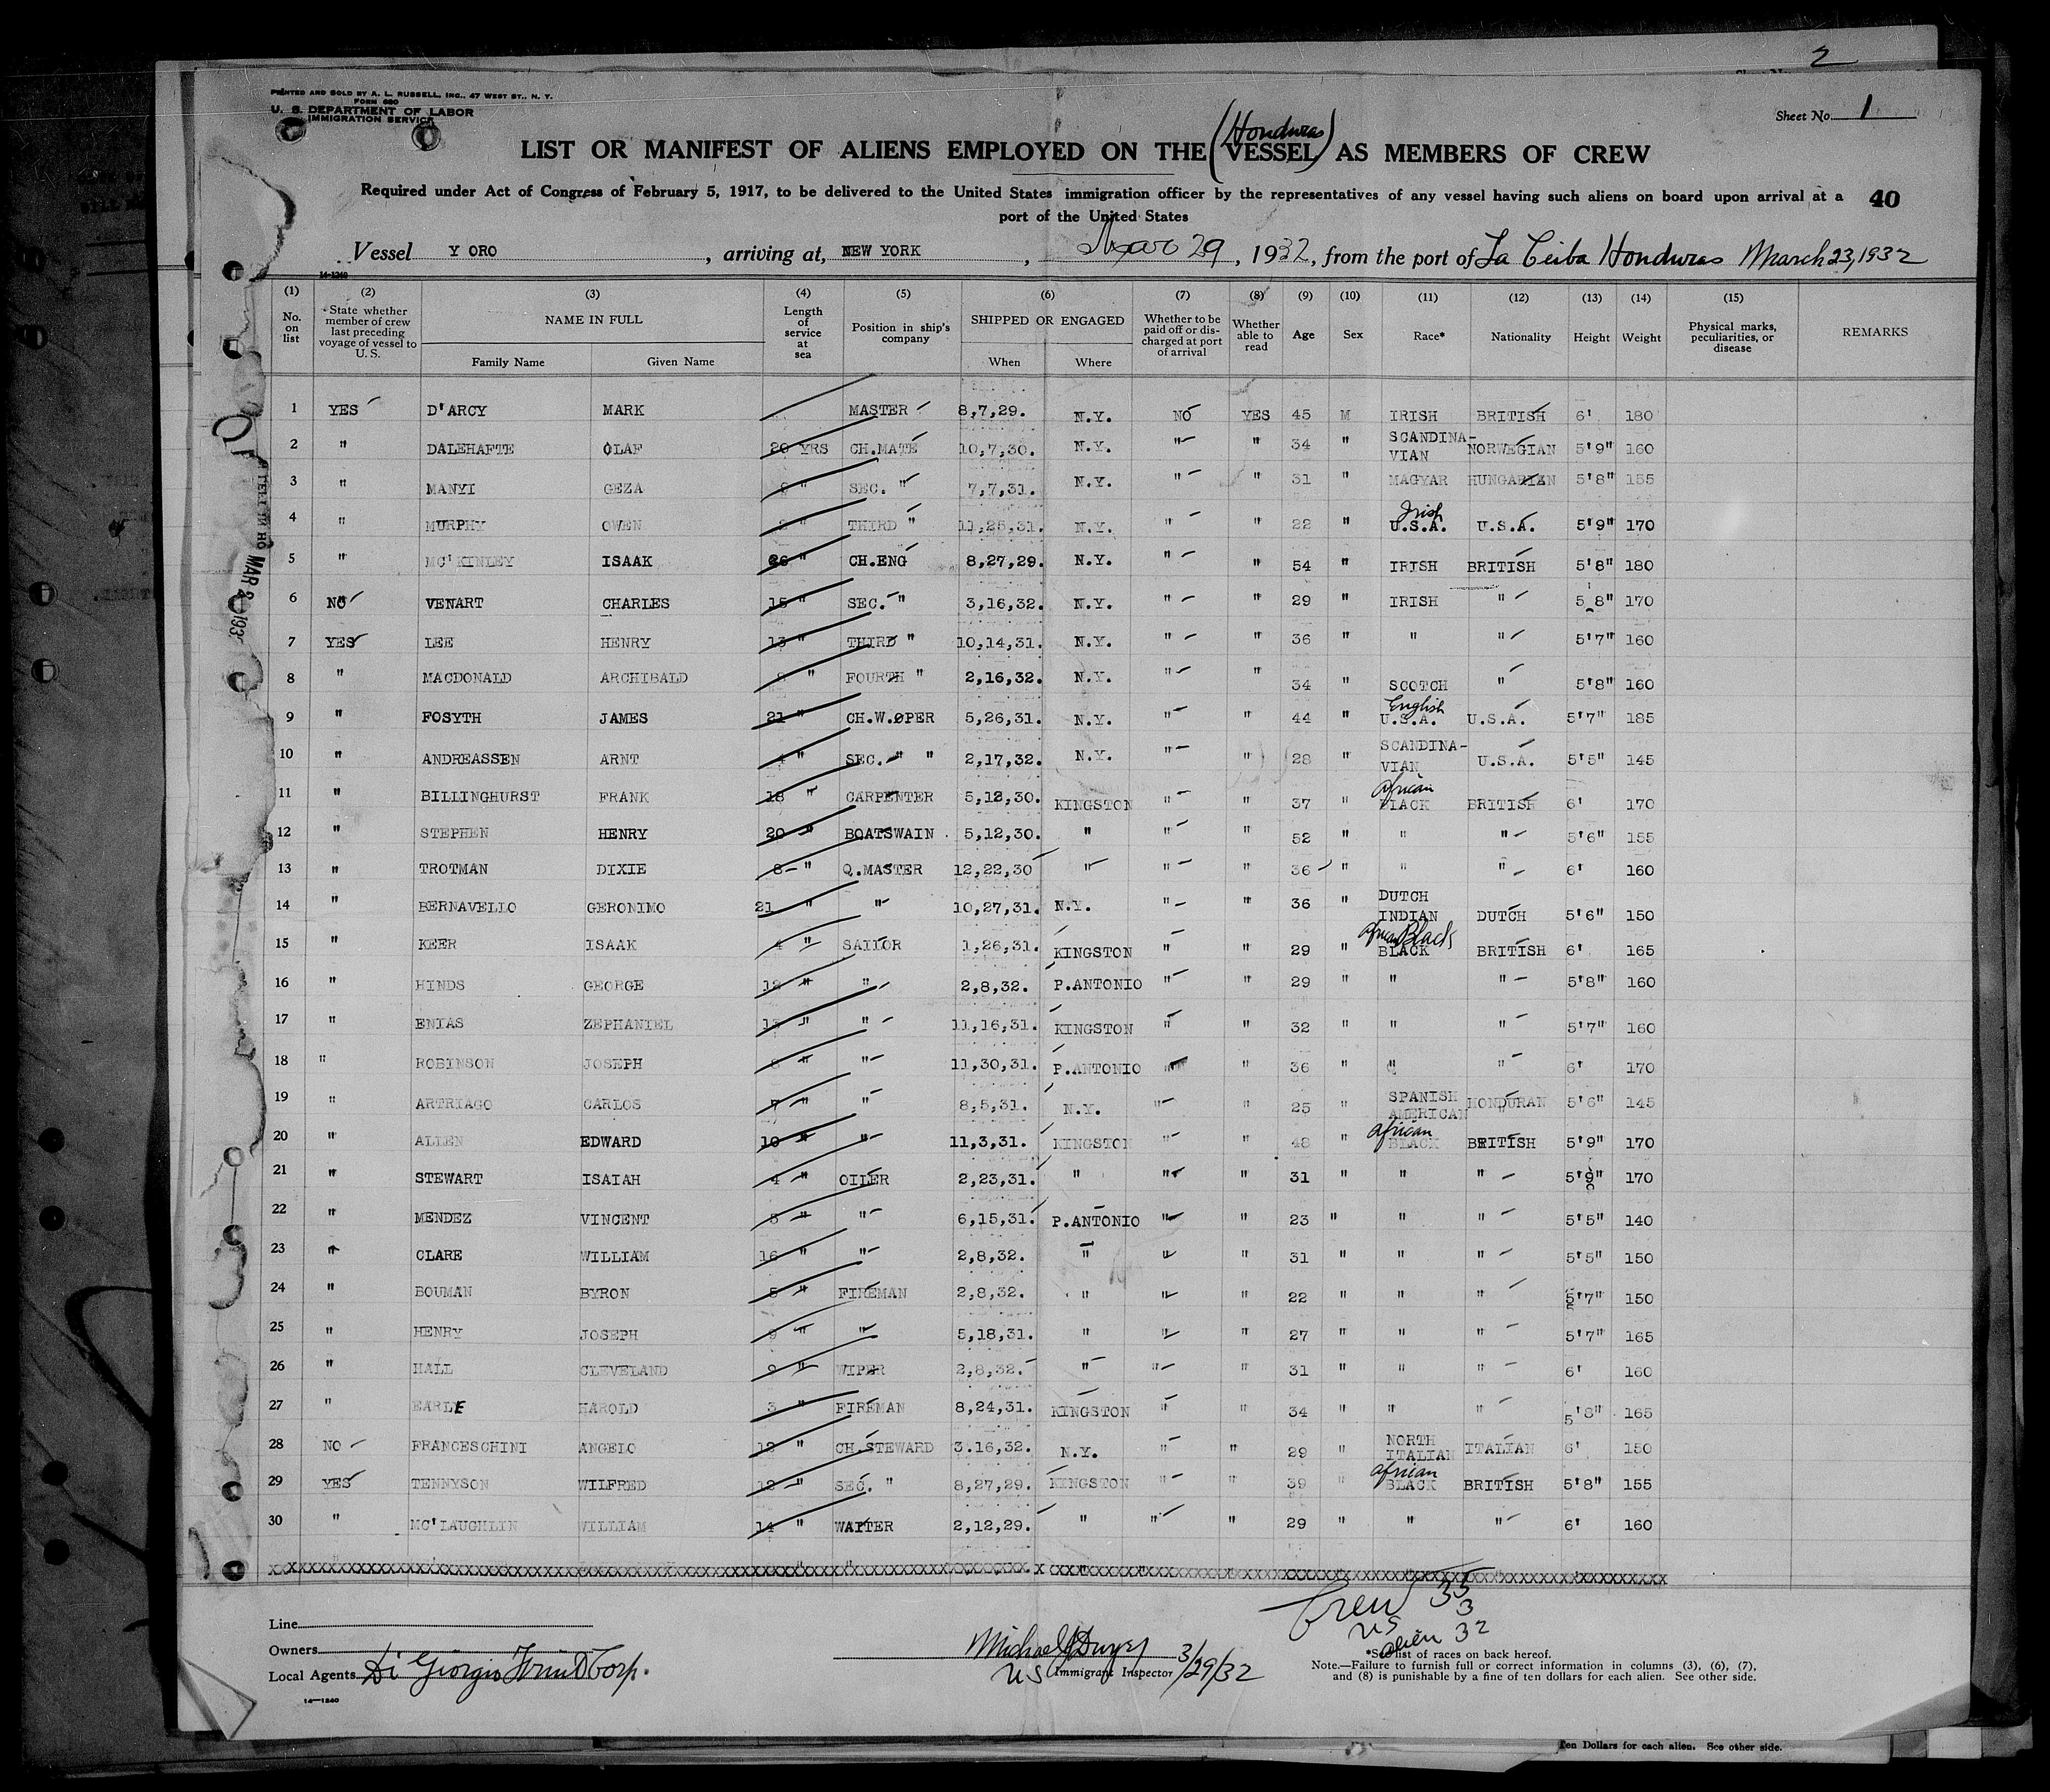 2
PRINTED AND SOLD BY A. L. RUSSELL, INC., 47 WEST ST., N. Y.
FORM 680
U. S. DEPARTMENT OF LABOR
IMMIGRATION SERVICE
Sheet No. 1
(Honduras)
LIST OR MANIFEST OF ALIENS EMPLOYED ON THE VESSEL AS MEMBERS OF CREW
Required under Act of Congress of February 5, 1917, to be delivered to the United States immigration officer by the representatives of any vessel having such aliens on board upon arrival at a
port of the United States
40
Vessel Y ORO, arriving at, NEW YORK, Mar 29, 1932, from the port of La Ceiba Honduras March 23, 1932
14-1240
(1) (2) (3) (4) (5) (6) (7) (8) (9) (10) (11) (12) (13) (14) (15)
No. on list State whether member of crew last preceding voyage of vessel to U. S. NAME IN FULL Family Name Given Name Length of service at sea Position in ship's company SHIPPED OR ENGAGED When Where Whether to be paid off or discharged at port of arrival Whether able to read Age Sex Race* Nationality Height Weight Physical marks, peculiarities, or disease REMARKS
1 YES D'ARCY MARK MASTER 8,7,29. N.Y. NO YES 45 M IRISH BRITISH 6' 180
2 " DALEHAFTE OLAF 20 YRS CH.MATE 10,7,30. N.Y. " " 34 " SCANDINA-VIAN NORWEGIAN 5'9" 160
3 " MANYI GEZA " SEC. " 7,7,31. N.Y. " " 31 " MAGYAR HUNGARIAN 5'8" 155
4 " MURPHY OWEN " THIRD " 11,25,31. N.Y. " " 22 " Irish U.S.A. U.S.A. 5'9" 170
5 " MC'KINLEY ISAAK " CH.ENG 8,27,29. N.Y. " " 54 " IRISH BRITISH 5'8" 180
6 NO VENART CHARLES 15 " SEC. " 3,16,32. N.Y. " " 29 " IRISH " 5 8" 170
7 YES LEE HENRY 13 " THIRD " 10,14,31. N.Y. " " 36 " " " 5'7" 160
8 " MACDONALD ARCHIBALD " FOURTH " 2,16,32. N.Y. " " 34 " SCOTCH " 5'8" 160
9 " FOSYTH JAMES 21 " CH.W.OPER 5,26,31. N.Y. " " 44 " English U.S.A. U.S.A. 5'7" 185
10 " ANDREASSEN ARNT 4 " SEC. " " 2,17,32. N.Y. " " 28 " SCANDINA-VIAN U.S.A. 5'5" 145
11 " BILLINGHURST FRANK 18 " CARPENTER 5,12,30. KINGSTON " " 37 " African BLACK BRITISH 6' 170
12 " STEPHEN HENRY 20 " BOATSWAIN 5,12,30. " " " 52 " " " 5'6" 155
13 " TROTMAN DIXIE 8 " Q.MASTER 12,22,30 " " " 36 " " " 6' 160
14 " BERNAVELLO GERONIMO 21 " " 10,27,31. N.Y. " " 36 " DUTCH INDIAN DUTCH 5'6" 150
15 " KEER ISAAK 4 " SAILOR 1,26,31. KINGSTON " " 29 " African Black BLACK BRITISH 6' 165
16 " HINDS GEORGE 12 " " 2,8,32. P.ANTONIO " " 29 " " " 5'8" 160
17 " ENIAS ZEPHANIEL " " 11,16,31. KINGSTON " " 32 " " " 5'7" 160
18 " ROBINSON JOSEPH " " 11,30,31. P.ANTONIO " " 36 " " " 6' 170
19 " ARTRIAGO CARLOS 7 " " 8,5,31. N.Y. " " 25 " SPANISH AMERICAN HONDURAN 5'6" 145
20 " ALLEN EDWARD 10 " " 11,3,31. KINGSTON " " 48 " African BLACK BRITISH 5'9" 170
21 " STEWART ISAIAH 4 " OILER 2,23,31. " " " 31 " " " 5'9" 170
22 " MENDEZ VINCENT " " 6,15,31. P.ANTONIO " " 23 " " " 5'5" 140
23 " CLARE WILLIAM 16 " " 2,8,32. " " " 31 " " " 5'5" 150
24 " BOUMAN BYRON 5 " FIREMAN 2,8,32. " " " 22 " " " 5'7" 150
25 " HENRY JOSEPH 9 " " 5,18,31. " " " 27 " " " 5'7" 165
26 " HALL CLEVELAND 9 " WIPER 2,8,32. " " " 31 " " " 6' 160
27 " EARLE HAROLD 3 " FIREMAN 8,24,31. KINGSTON " " 34 " " " 5'8" 165
28 NO FRANCESCHINI ANGELO 12 " CH.STEWARD 3.16,32. N.Y. " " 29 " NORTH ITALIAN ITALIAN 6' 150
29 YES TENNYSON WILFRED 12 " SEC. " 8,27,29. KINGSTON " " 39 " African BLACK BRITISH 5'8" 155
30 " MC'LAUGHLIN WILLIAM 14 " WAITER 2,12,29. " " " 29 " " " 6' 160
Crew 35
US 3
alien 32
Line
Owners
Local Agents Di Giorgio Fruit Corp.
14-1240
Michael J Dwyer 3/29/32
US Immigrant Inspector
*See list of races on back hereof.
Note.—Failure to furnish full or correct information in columns (3), (6), (7),
and (8) is punishable by a fine of ten dollars for each alien. See other side.
Ten Dollars for each alien. See other side.